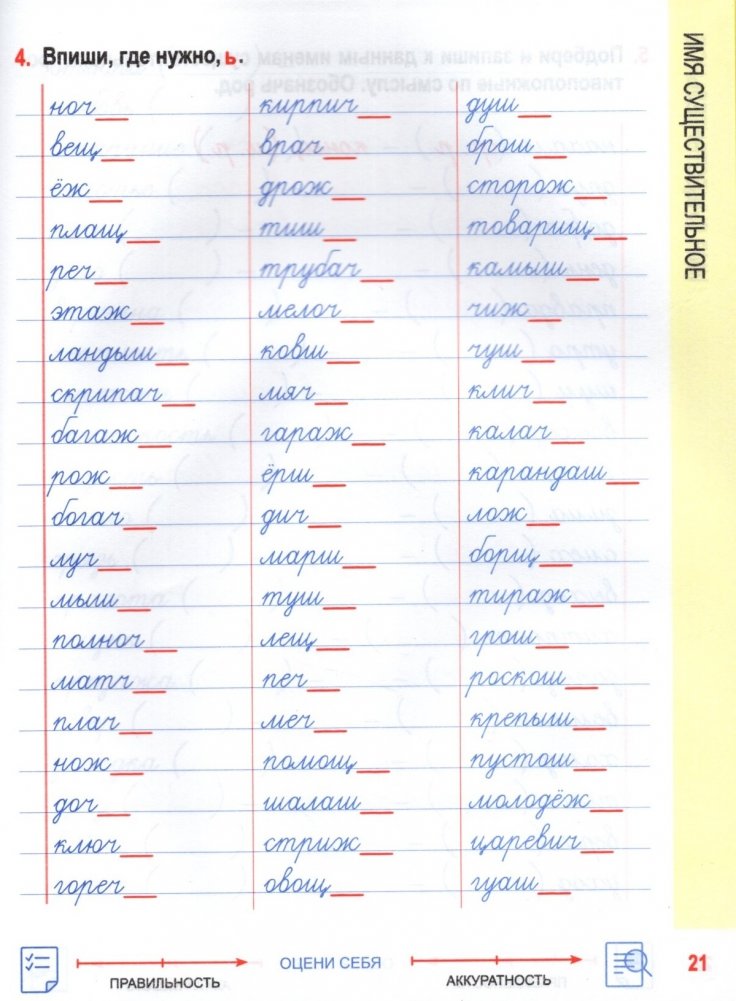 4. Впиши, где нужно, ь.
ноч__ кирпич__ душ__
вещ__ врач__ брош__
ёж__ дрож__ сторож__
плащ__ тиш__ товарищ__
реч__ трубач__ камыш__
этаж__ мелоч__ чиж__
ландыш__ ковш__ чуш__
скрипач__ мяч__ клич__
багаж__ гараж__ калач__
рож__ ёрш__ карандаш__
богач__ дич__ лож__
луч__ марш__ борщ__
мыш__ туш__ тираж__
полноч__ лещ__ грош__
матч__ печ__ роскош__
плач__ меч__ крепыш__
нож__ помощ__ пустош__
доч__ шалаш__ молодёж__
ключ__ стриж__ царевич__
гореч__ овощ__ гуаш__
ИМЯ СУЩЕСТВИТЕЛЬНОЕ
ПРАВИЛЬНОСТЬ ОЦЕНИ СЕБЯ АККУРАТНОСТЬ
21